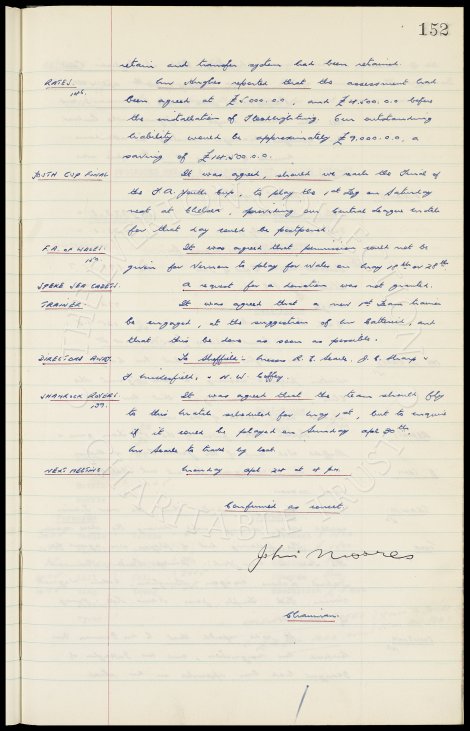 152
retain and transfer system had been retained.
RATES. Mr Hughes reported that the assessment had
146. been agreed at £5,000.0.0, and £4,500.0.0 before
the installation of Floodlighting. Our outstanding
liability would be approximately £9,000.0.0, a
saving of £14,500.0.0.
YOUTH CUP FINAL It was agreed, should we reach the Final of
the F.A. Youth Cup, to play the 1st Leg on Saturday
next at Chelsea, providing our Central League match
for that day could be postponed.
F.A. OF WALES. It was agreed that permission could not be
given for Vernon to play for Wales on May
SPEKE SEA CADETS. A request for a donation was not granted.
TRAINER. It was agreed that a new 1st Team trainer
be engaged, at the suggestion of Mr Catterick, and
that this be done as soon as possible.
DIRECTORS AWAY. To Sheffield:- Messrs R. E. Searle, J. C. Sharp &
F. Micklesfield, & N. W. Coffey.
SHAMROCK ROVERS. It was agreed that the team should fly
139. to this match scheduled for May 1st, but to enquire
if it could be played on Sunday Apl 30th.
Mr Searle to travel by boat.
NEXT MEETING. Monday Apl at 4 pm.
Confirmed as correct
John Moores
Chairman.
CHARITABLE TRUST